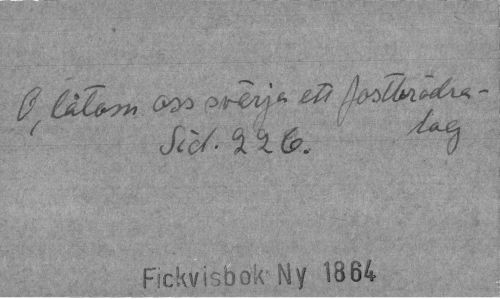 O, låtom oss svärja ett fostbrödra-
lag
Sid. 226.
Fickvisbok Ny 1864